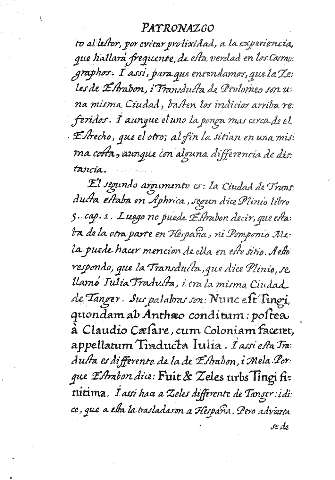 PATRONAZGO
to al lector, por evitar prolixidad, a la experiencia,
que hallará frequente, de esta verdad en los Cosmo
graphos. I assi, para que entendamos, que la Ze-
les de Estrabon, i Transducta de Ptolomeo son u-
na misma Ciudad, basten los indicios arriba re-
feridos. I aunque el uno la ponga mas cerca de el
Estrecho, que el otro; al fin la sitian en una mis
ma costa, aunque con alguna differencia de dis-
tancia.
El segundo argumento es: la Ciudad de Trans
ducta estaba en Aphrica, segun dice Plinio libro
5. cap. 1. Luego no puede Estrabon decir, que esta-
ba de la otra parte en Hespaña, ni Pomponio Me-
la puede hacer mencion de ella en este sitio. A esto
respondo, que la Transducta, que dice Plinio, se
llamó Iulia Traducta, i era la misma Ciudad
de Tanger. Sus palabras son: Nunc est Tingi,
quondam ab Anthæo conditum: postea
à Claudio Cæsare, cum Coloniam faceret,
appellatum Traducta Iulia. I assi esta Tra-
ducta es differente de la de Estrabon, i Mela. Por-
que Estrabon dice: Fuit & Zeles urbs Tingi fi-
nitima. I assi hace a Zeles differente de Tanger: i di-
ce, que a esta la trasladaron a Hespaña. Pero advierta
se de